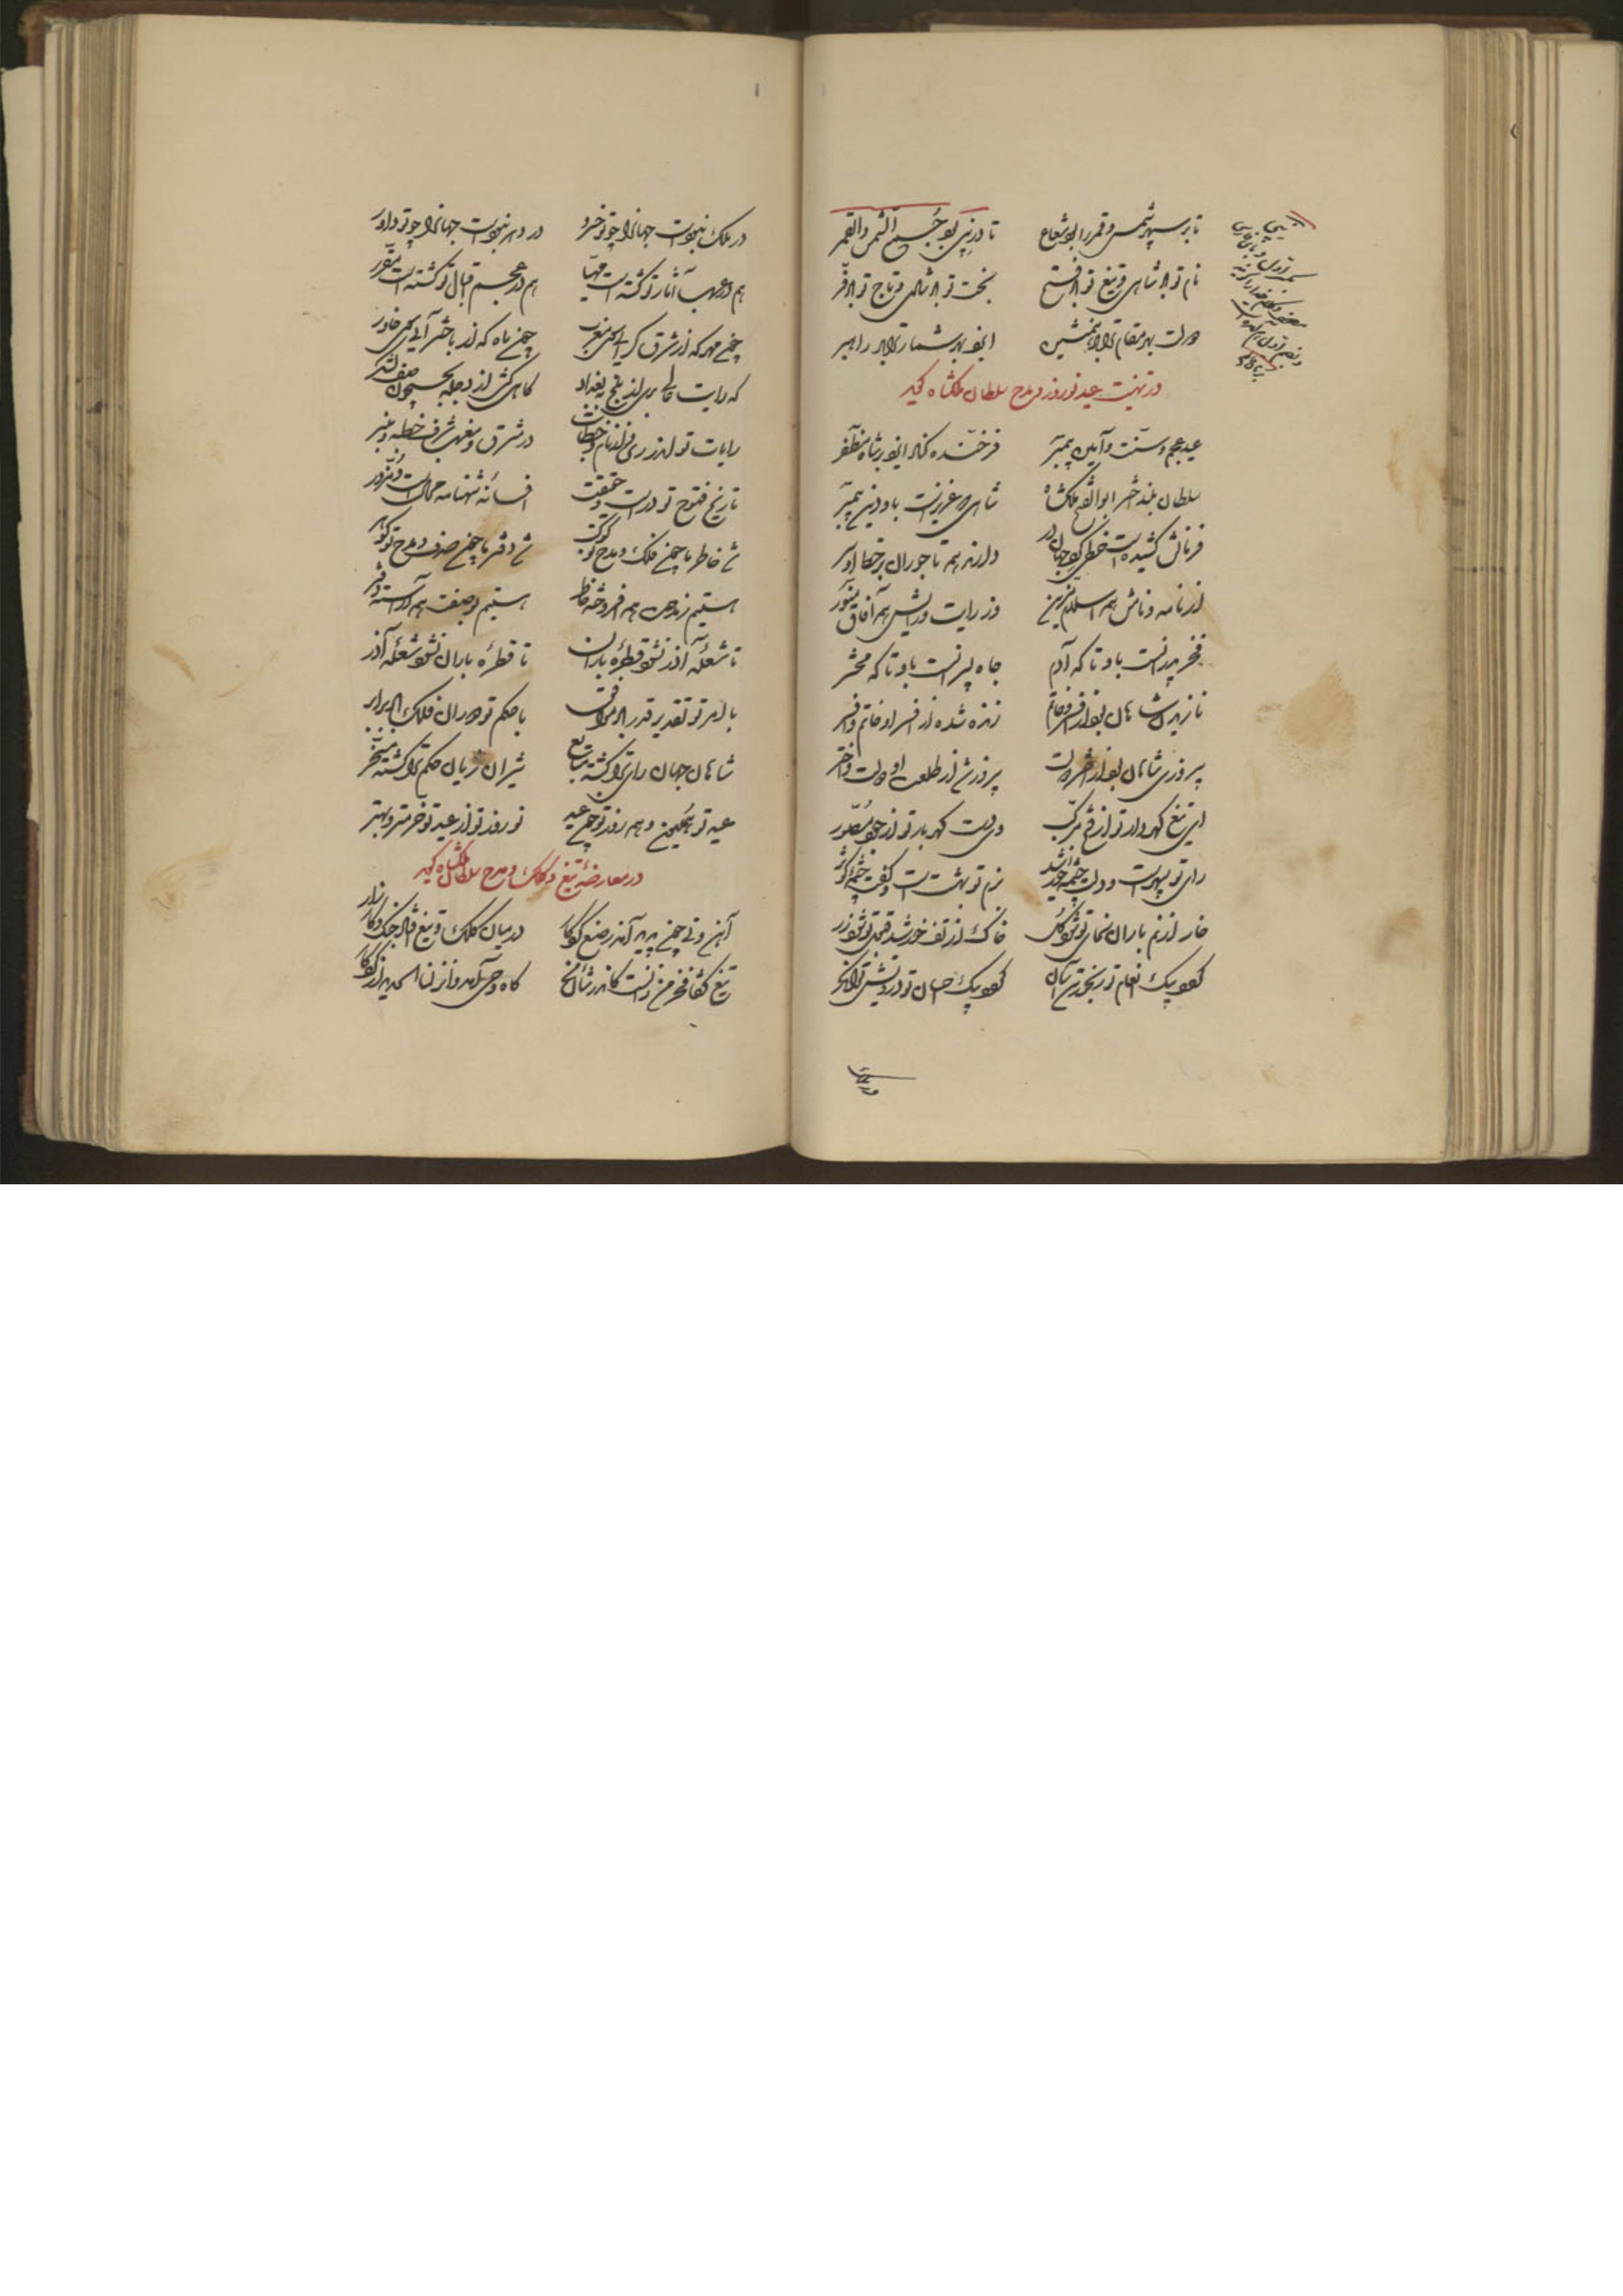 تا بر سپهر شمس و قمر را بود شعاع تا در نبی بود جمع الشمس والقمر
نام تو با شاهی و تیغ تو با فتح بخت تو با شادی و تاج تو با فر
دولت بهر مقام ترا بهمنشین ایزد بهر شمار ترا راهبر
در تهنیت عید نوروز و مدح سلطان ملکشاه گوید
عید عجم و سنت و آیین پیمبر فرخنده کناد ایزد بر شاه مظفر
سلطان بلند اختر ابوالفتح ملکشاه شاهی که عزیزست بدو دین پیمبر
فرمانش کشیده است خطی گرد جهان در دارند همه تاجوران بر خط او سر
از نامه و نامش همه اسلام مزین وز رایت و رایش همه آفاق منور
فخر پدرانست بدو تا که آدم جاه پسرانست بدو تا که محشر
نازیدن شاهان بود از افسر و خاتم نازنده شده از فر او خاتم و افسر
پیروزی شاهان بود از اختر و دولت پیروزی از طلعت او دولت و اختر
ای تیغ گهردار تو از فتح مرکب وی دست گهربار تو از جود مصور
رای تو سپهرست و درو چشمه خورشید بزم تو بهشت است و کفت چشمه کوثر
خار از نم باران سخای تو شود گل خاک از تف خورشید قبول تو شود زر
گوید یک انعام تو رنجور تن آسان گوید یک احسان تو درویش توانگر
در ملک نبودست جهانرا چو تو خسرو در دهر نبودست جهانرا چو تو داور
هم در عرب آثار تو گشته است مهیا هم در عجم اقبال تو گشته است مقرر
چون مهر که از شرق گرایی سوی مغرب چون ماه که از باختر آیی سوی خاور
که رایت عالی بری از بلخ به بغداد گاهی کشی از دجله به جیحون صف لشکر
رایات تو اندر در شرق و مغرب شرف خطبه و منبر
تاریخ فتوح تو درست و حقیقت افسانه شهنامه محالست و مزور
شد خاطر ما چون فلک و مدح تو کوکب شد دفتر ما چون صدف و مدح تو گوهر
هستیم ز مدحت همه افروخته خاطر هستیم بوصفت همه آراسته دفتر
تا شعله آذر نشود قطره باران تا قطره باران نشود شعله آذر
با امر تو تقدیر قدر باد موافق با حکم تو دوران فلک باد برابر
شاهان جهان رای ترا گشته متابع شیران ژیان حکم ترا گشته مسخر
عید تو همایون و همه روز تو چون عید نوروز تو از عید تو خرمتر و بهتر
در معارضه تیغ و کلک و مدح سلطان ملکشاه گوید
آهن و نی چون پدید آمد ز صنع کردگار در میان کلک و تیغ افتاد جنگ و کارزار
تیغ گفتا فخر من زانست کاندر شان من گاه وحی آمد و انزلنا الحدید از کردگار